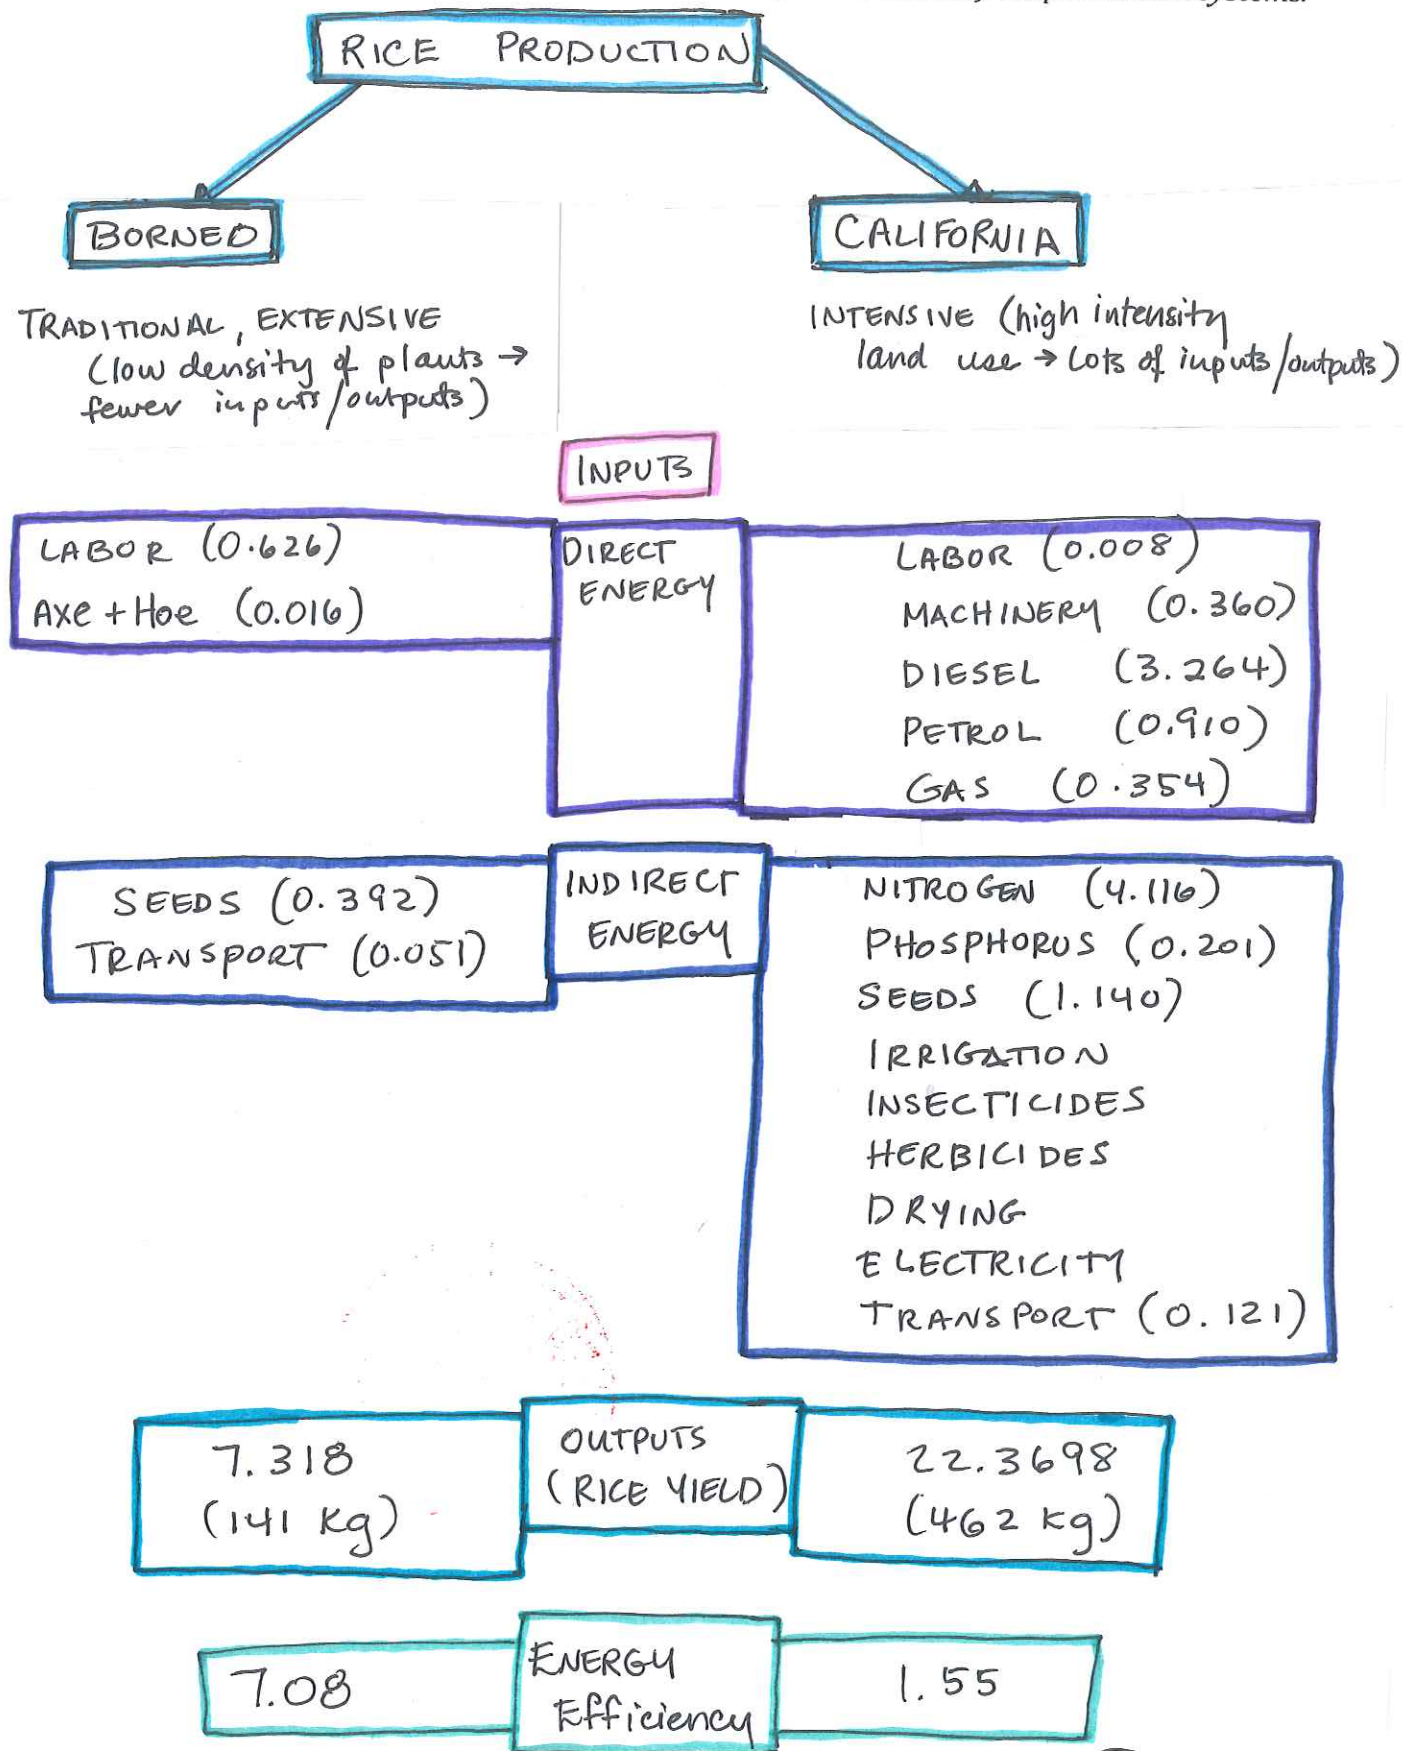 systems.
RICE PRODUCTION
BORNEO
CALIFORNIA
TRADITIONAL, EXTENSIVE
(low density of plants →
fewer inputs/outputs)
INTENSIVE (high intensity
land use → Lots of inputs/outputs)
INPUTS
LABOR (0.626)
Axe + Hoe (0.016)
DIRECT
ENERGY
LABOR (0.008)
MACHINERY (0.360)
DIESEL (3.264)
PETROL (0.910)
GAS (0.354)
SEEDS (0.392)
TRANSPORT (0.051)
INDIRECT
ENERGY
NITROGEN (4.116)
PHOSPHORUS (0.201)
SEEDS (1.140)
IRRIGATION
INSECTICIDES
HERBICIDES
DRYING
ELECTRICITY
TRANSPORT (0.121)
7.318
(141 kg)
OUTPUTS
(RICE YIELD)
22.3698
(462 kg)
7.08
ENERGY
Efficiency
1.55